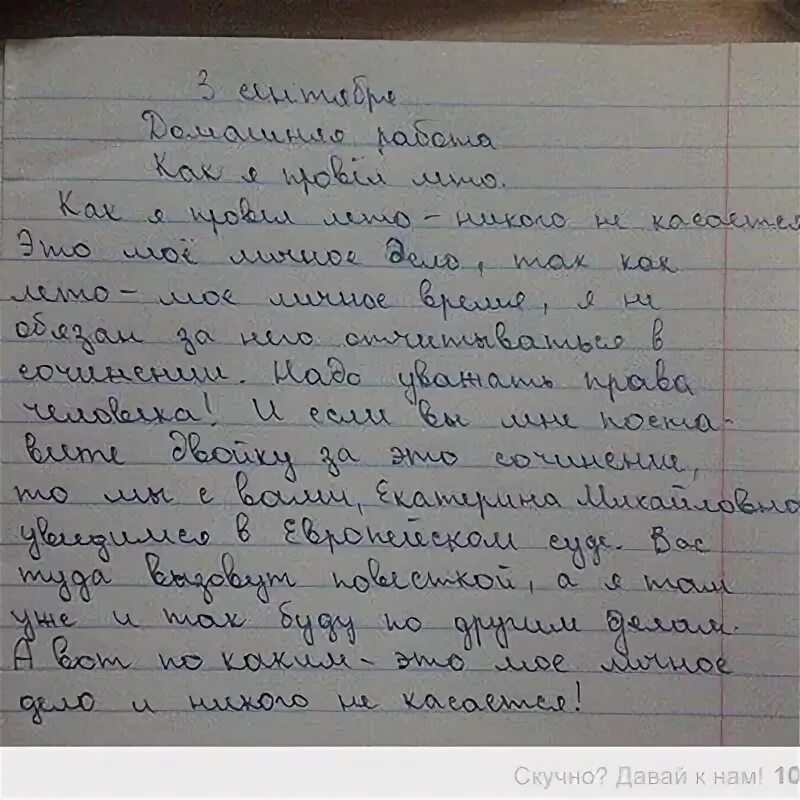 3 сентября
Домашняя работа
Как я провёл лето.
Как я провёл лето - никого не касается
Это моё личное дело, так как
лето - мое личное время, я не
обязан за него отчитываться в
сочинении. Надо уважать права
человека! И если вы мне поста-
вите двойку за это сочинение,
то мы с вами, Екатерина Михайловна
увидимся в Европейском суде. Вас
туда вызовут повесткой, а я там
уже и так буду по другим делам.
А вот по каким - это мое личное
дело и никого не касается!
Скучно? Давай к нам! 10